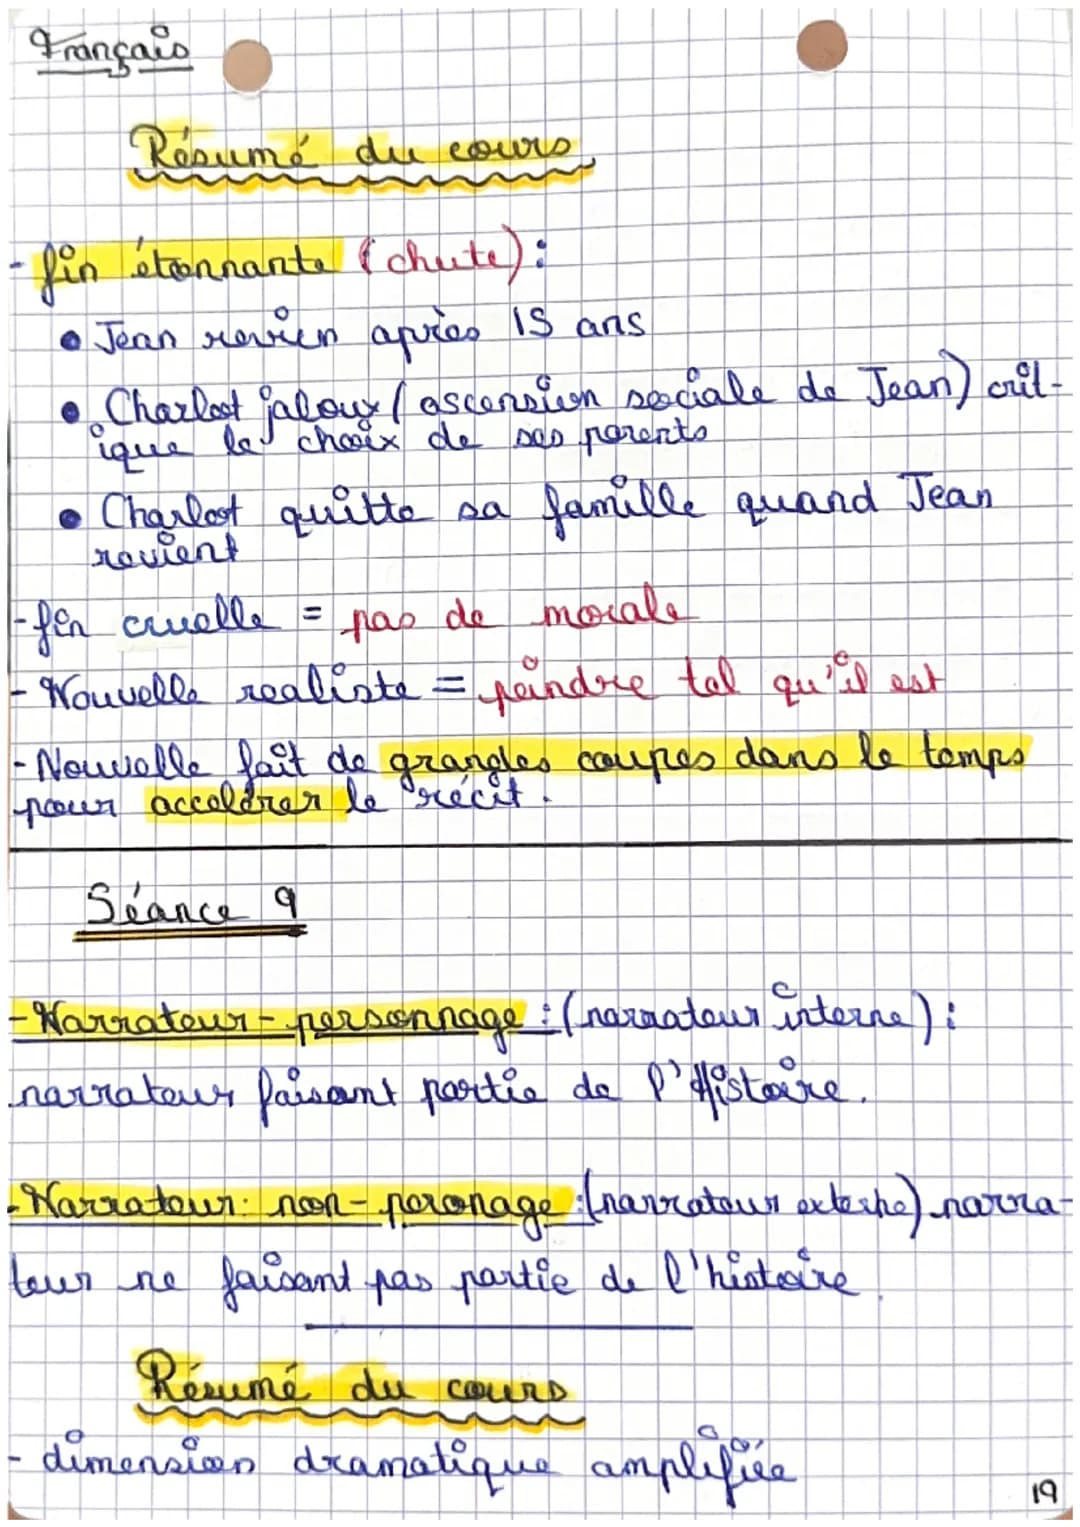 Français
Résumé du cours
- fin étonnante (chute) :
• Jean revien après 15 ans
• Charlot jaloux (ascension sociale de Jean) crit-
ique le choix de ses parents
• Charlot quitte sa famille quand Jean
revient
- fin cruelle = pas de morale
- Nouvelle realiste = peindre tel qu'il est
- Nouvelle fait de grandes coupes dans le temps
pour accelérer le récit.
Séance 9
- Narrateur-personnage : (narrateur interne) :
narrateur faisant partie de l'Histoire.
- Narrateur: non-peronage : (narrateur externe) narra-
teur ne faisant pas partie de l'histoire.
Résumé du cours
- dimension dramatique amplifiée
19